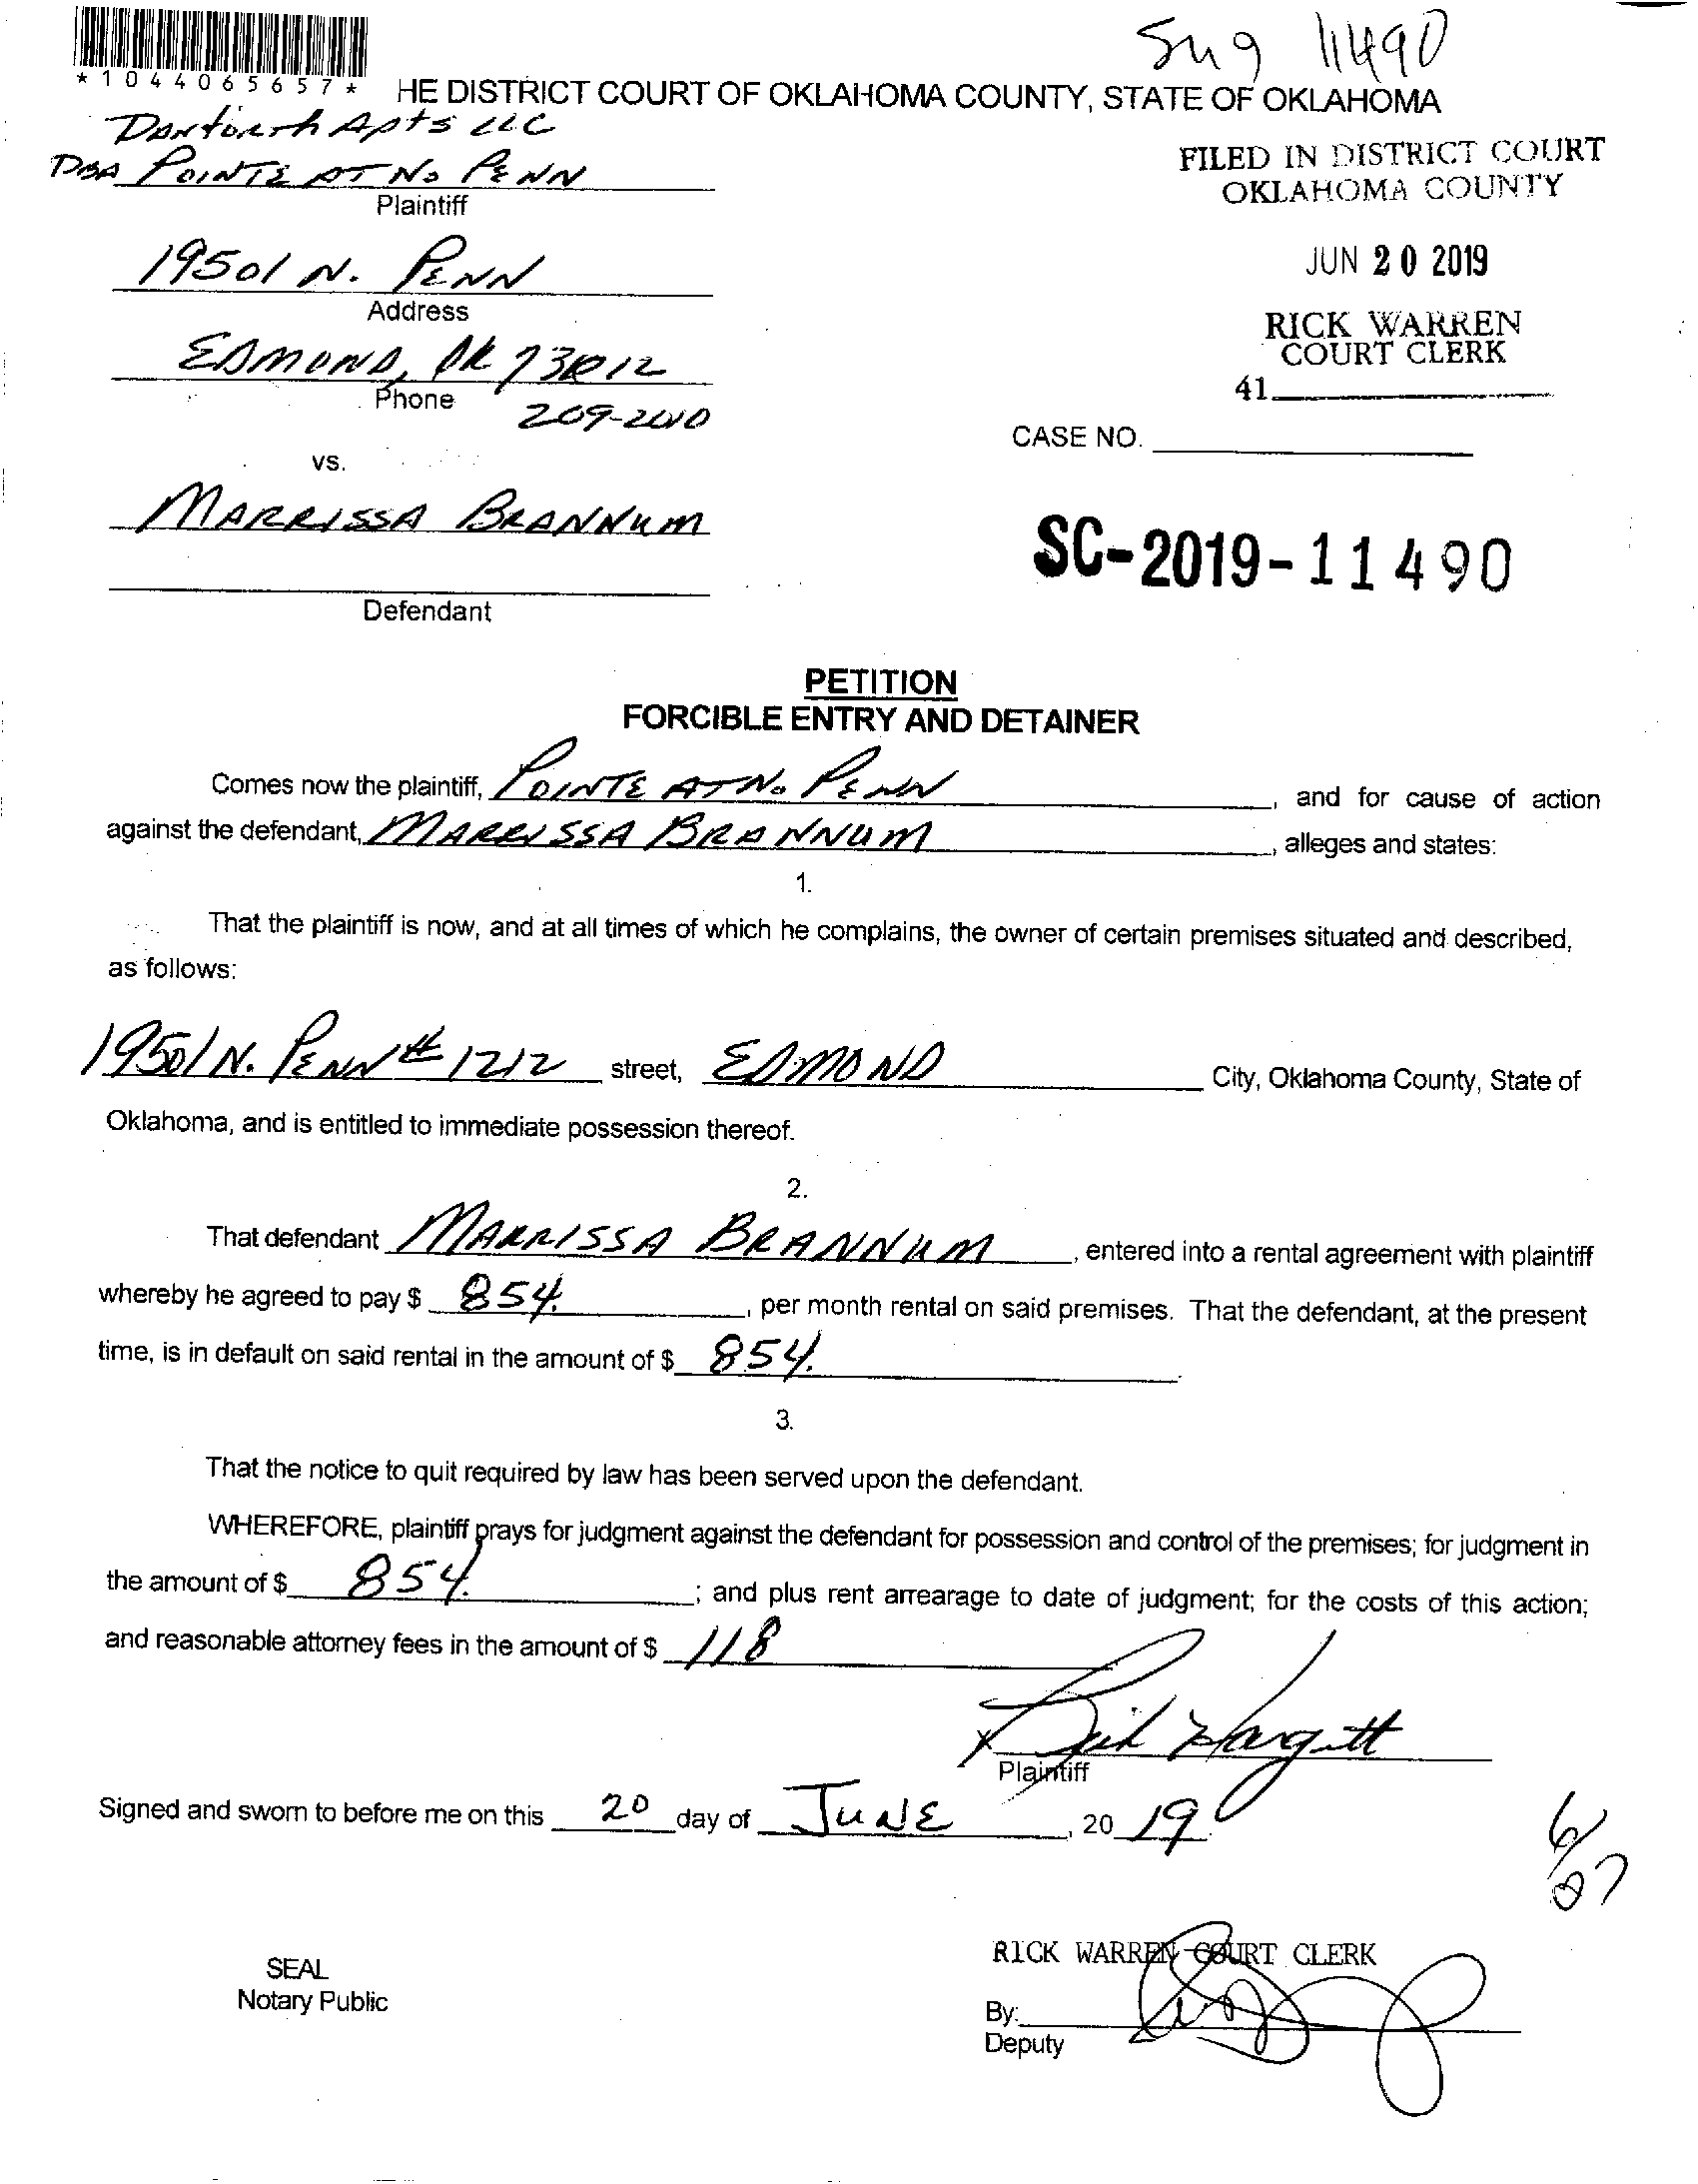 Sm 9 11490
*1044065657*
HE DISTRICT COURT OF OKLAHOMA COUNTY, STATE OF OKLAHOMA
Danforth Apts LLC
DBA POINTE AT No PENN
Plaintiff
FILED IN DISTRICT COURT
OKLAHOMA COUNTY
19501 N. PENN
Address
JUN 20 2019
RICK WARREN
COURT CLERK
EDMOND, OK 73012
Phone
209-2010
41
CASE NO.
vs.
MARRISSA BRANNUM
SC-2019-11490
Defendant
PETITION
FORCIBLE ENTRY AND DETAINER
Comes now the plaintiff, POINTE AT No. PENN, and for cause of action
against the defendant, MARRISSA BRANNUM, alleges and states:
1.
That the plaintiff is now, and at all times of which he complains, the owner of certain premises situated and described,
as follows:
19501 N. PENN # 1212 street, EDMOND City, Oklahoma County, State of
Oklahoma, and is entitled to immediate possession thereof.
2.
That defendant MARRISSA BRANNUM, entered into a rental agreement with plaintiff
whereby he agreed to pay $ 854., per month rental on said premises. That the defendant, at the present
time, is in default on said rental in the amount of $ 854.
3.
That the notice to quit required by law has been served upon the defendant.
WHEREFORE, plaintiff prays for judgment against the defendant for possession and control of the premises; for judgment in
the amount of $ 854.; and plus rent arrearage to date of judgment; for the costs of this action;
and reasonable attorney fees in the amount of $ 118
x Hargett
Plaintiff
Signed and sworn to before me on this 20 day of JUNE, 20 19.
6/27
RICK WARREN COURT CLERK
SEAL
Notary Public
By:
Deputy